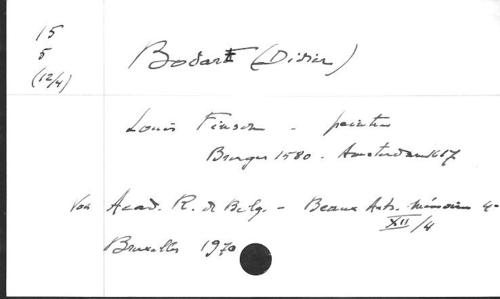 15
5
(12/4)
Bodart (Didier)
Louis Finson - peintre
Bruges 1580 - Amsterdam 1617
Voir Acad. R. de Belg. - Beaux Arts. Mémoires 4°
XII/4
Bruxelles 1970